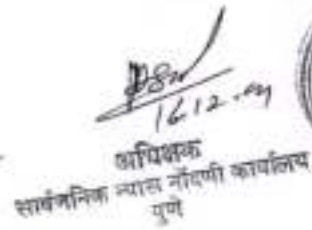 16.12.04
अधिक्षक
सार्वजनिक न्यास नोंदणी कार्यालय
पुणे